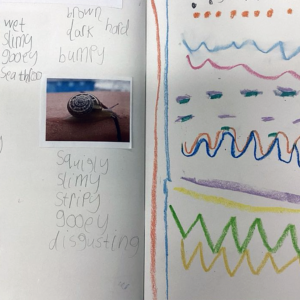 wet
slimy
gooey
brown
dark hard
bumpy
squigly
slimy
stripy
gooey
disgusting